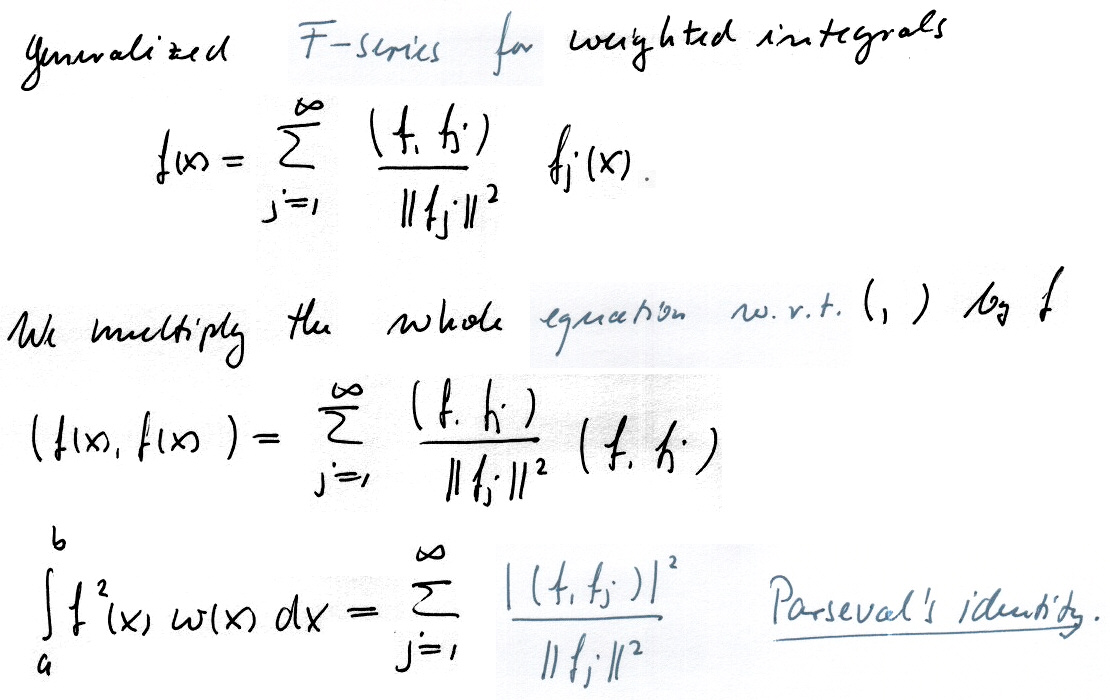 generalized F-series for weighted integrals
f(x) = ∑_{j=1}^{∞} (f, fj) / ||fj||² fj(x).
We multiply the whole equation w.r.t. (,) by f
(f(x), f(x)) = ∑_{j=1}^{∞} (f, fj) / ||fj||² (f, fj)
∫_a^b f²(x) w(x) dx = ∑_{j=1}^{∞} |(f, fj)|² / ||fj||² Parseval's identity.